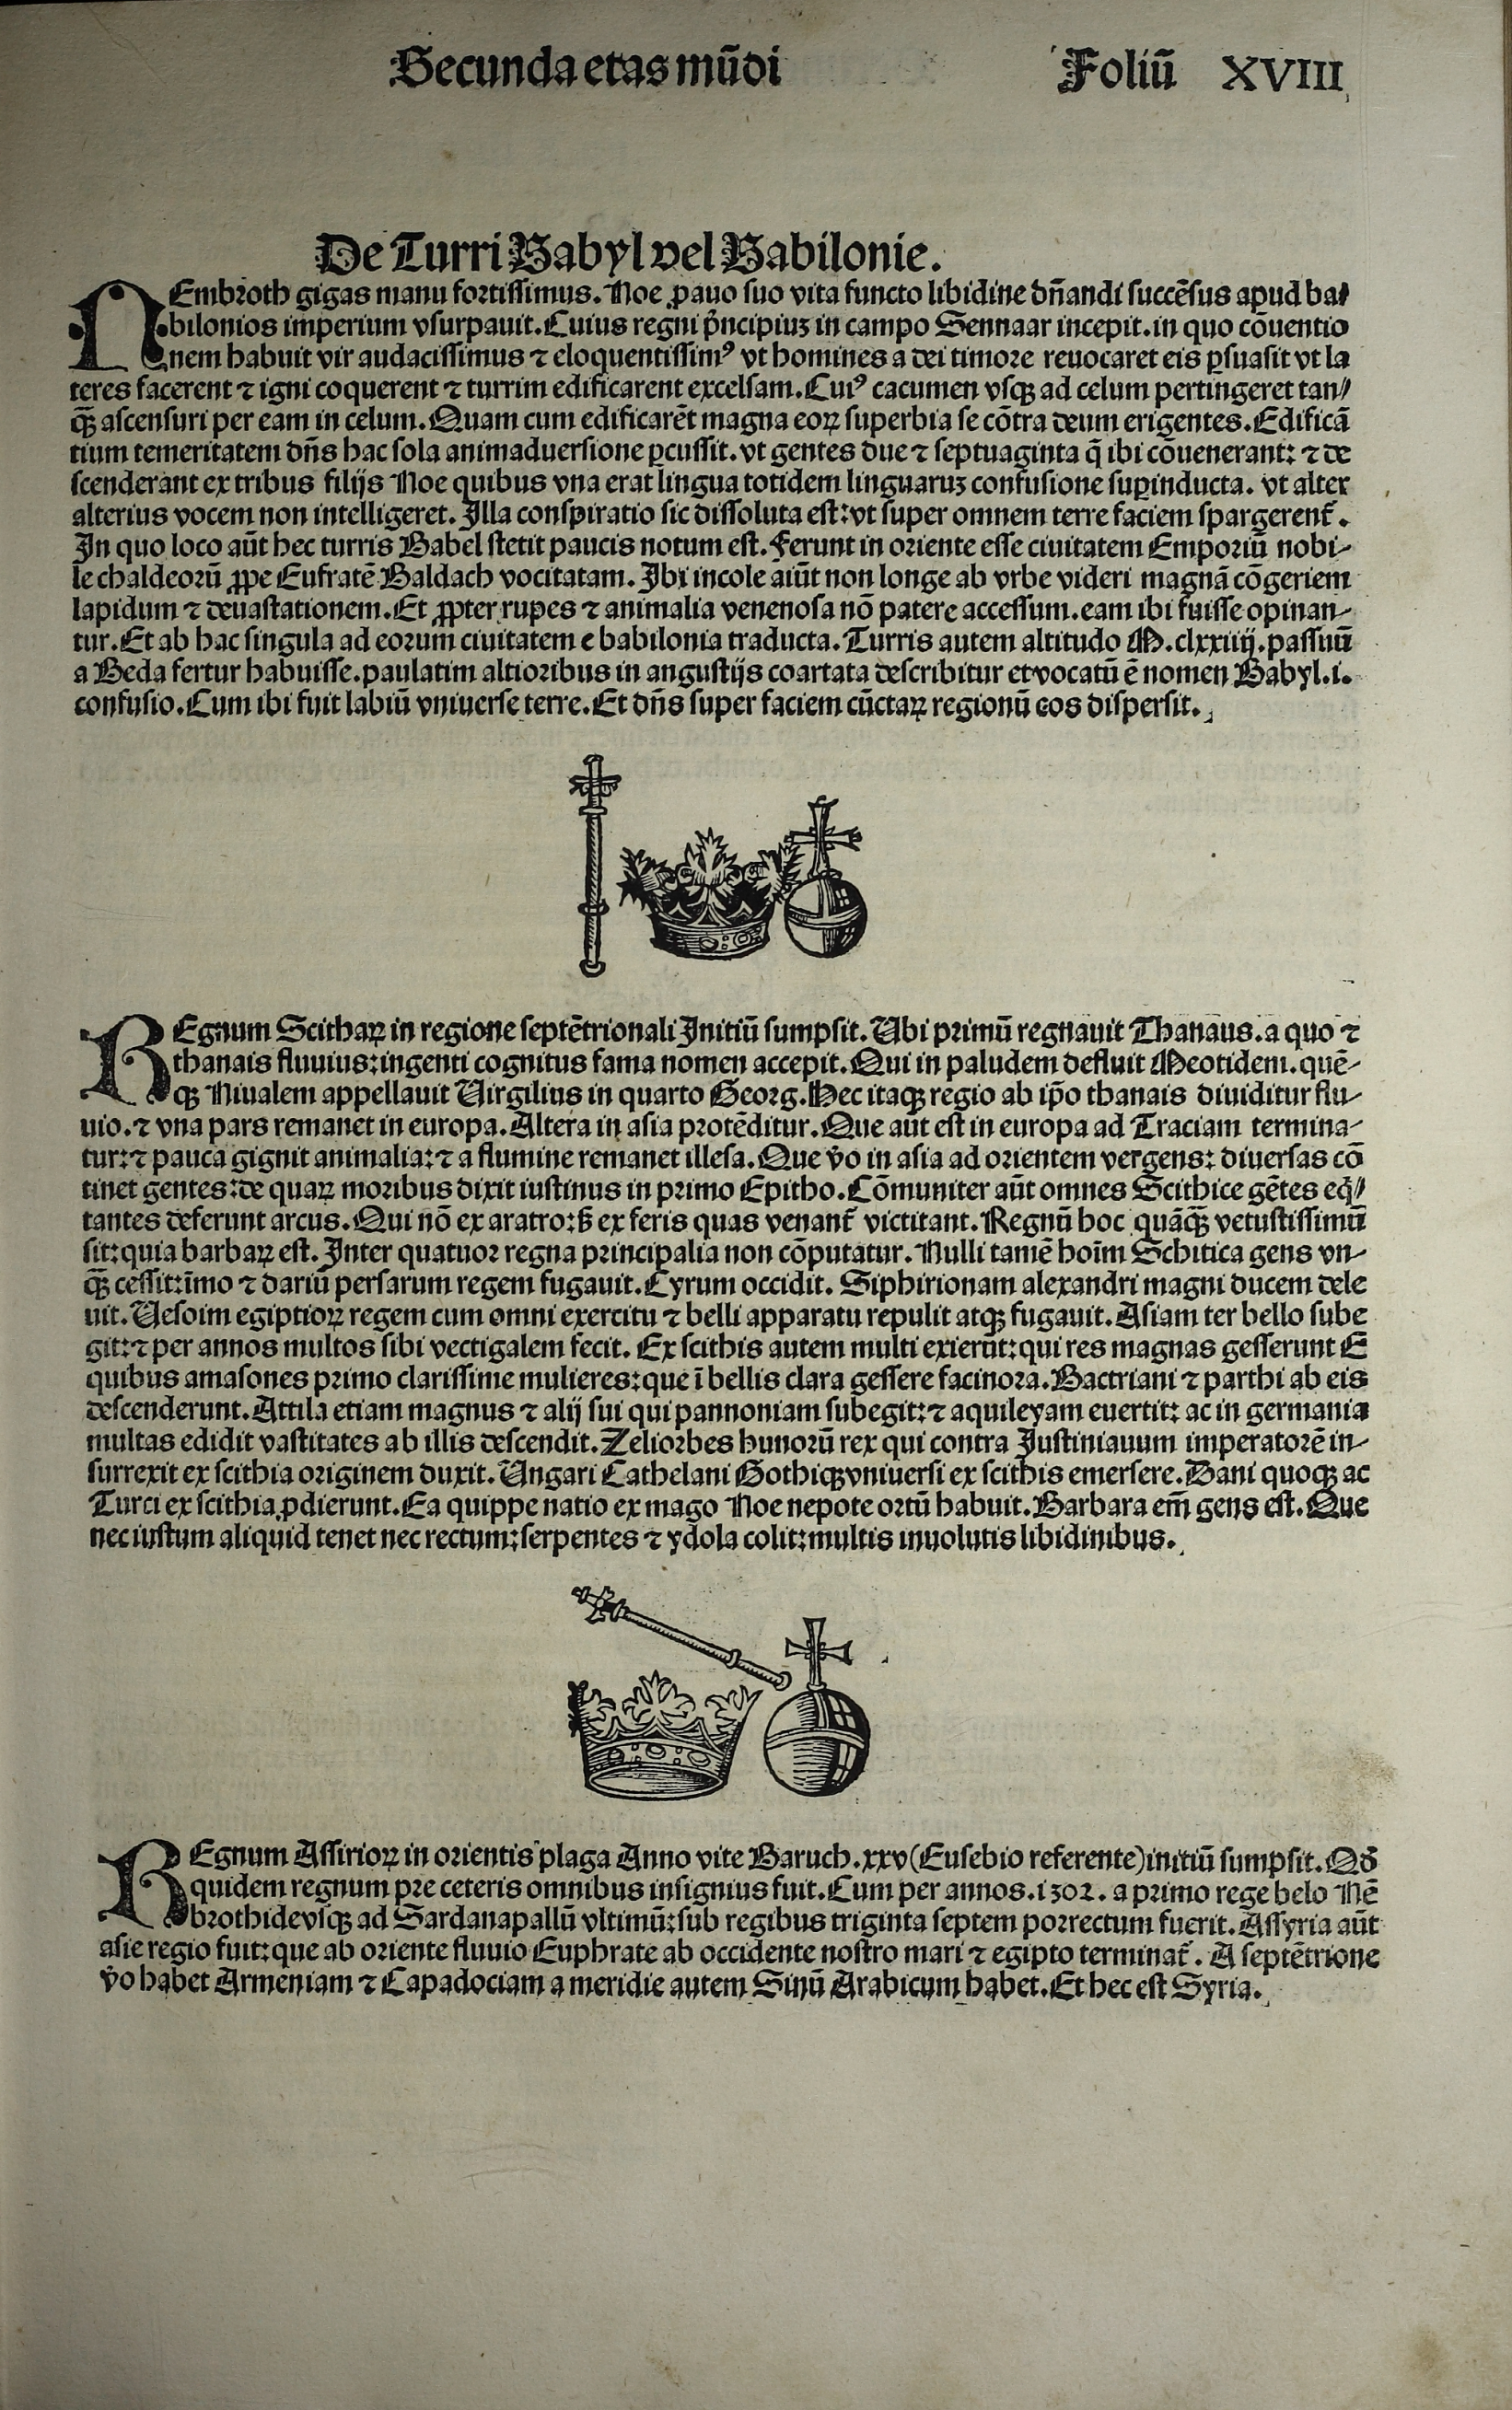 Secunda etas mūdi
Foliū XVIII
De Turri Babyl vel Babilonie.
NEmbroth gigas manu fortissimus. Noe ꝓauo suo vita functo libidine dn̄andi succēsus apud ba⸗
bilonios imperium vsurpauit. Cuius regni p̄ncipiuꝫ in campo Sennaar incepit. in quo cōuentio
nem habuit vir audacissimus ⁊ eloquentissimꝰ vt homines a dei timore reuocaret eis ꝑsuasit vt la
teres facerent ⁊ igni coquerent ⁊ turrim edificarent excelsam. Cuiꝰ cacumen vsqꝫ ad celum pertingeret tan⸗
qꝫ̄ ascensuri per eam in celum. Quam cum edificarēt magna eoꝝ superbia se cōtra deum erigentes. Edificā
tium temeritatem dn̄s hac sola animaduersione ꝑcussit. vt gentes due ⁊ septuaginta q̄ ibi cōuenerant: ⁊ de
scenderant ex tribus filijs Noe quibus vna erat lingua totidem linguaruꝫ confusione suꝑinducta. vt alter
alterius vocem non intelligeret. Illa conspiratio sic dissoluta est: vt super omnem terre faciem spargerent̄.
In quo loco aūt hec turris Babel stetit paucis notum est. Ferunt in oriente esse ciuitatem Emporiū nobi⸗
le chaldeorū ꝓpe Eufratē Baldach vocitatam. Ibi incole aiūt non longe ab vrbe videri magnā cōgeriem
lapidum ⁊ deuastationem. Et ꝓpter rupes ⁊ animalia venenosa nō patere accessum. eam ibi fuisse opinan⸗
tur. Et ab hac singula ad eorum ciuitatem e babilonia traducta. Turris autem altitudo M.clxxiiij. passuū
a Beda fertur habuisse. paulatim altioribus in angustijs coartata describitur et vocatū ē nomen Babyl. i.
confusio. Cum ibi fuit labiū vniuerse terre. Et dn̄s super faciem cūctaꝝ regionū eos dispersit.
REgnum Scithaꝝ in regione septētrionali Initiū sumpsit. Ubi primū regnauit Thanaus. a quo ⁊
thanais fluuius: ingenti cognitus fama nomen accepit. Qui in paludem defluit Meotidem. quē⸗
qꝫ Niualem appellauit Uirgilius in quarto Georg. Hec itaqꝫ regio ab ip̄o thanais diuiditur flu⸗
uio. ⁊ vna pars remanet in europa. Altera in asia protēditur. Que aut est in europa ad Traciam termina⸗
tur: ⁊ pauca gignit animalia: ⁊ a flumine remanet illesa. Que v̄o in asia ad orientem vergens: diuersas cō
tinet gentes: de quaꝝ moribus dixit iustinus in primo Epitho. Cōmuniter aūt omnes Scithice gētes eq̄⸗
tantes deferunt arcus. Qui nō ex aratro: ß ex feris quas venant̄ victitant. Regnū hoc quāqꝫ̄ vetustissimū
sit: quia barbaꝝ est. Inter quatuor regna principalia non cōputatur. Nulli tamē hoīm Schitica gens vn⸗
qꝫ̄ cessit: īmo ⁊ dariū persarum regem fugauit. Cyrum occidit. Siphirionam alexandri magni ducem dele
uit. Uesoim egiptioꝝ regem cum omni exercitu ⁊ belli apparatu repulit atqꝫ fugauit. Asiam ter bello sube
git: ⁊ per annos multos sibi vectigalem fecit. Ex scithis autem multi exierūt: qui res magnas gesserunt E
quibus amasones primo clarissime mulieres: que ī bellis clara gessere facinora. Bactriani ⁊ parthi ab eis
descenderunt. Attila etiam magnus ⁊ alij sui qui pannoniam subegit: ⁊ aquileyam euertit: ac in germania
multas edidit vastitates ab illis descendit. Zeliorbes hunorū rex qui contra Iustiniauum imperatorē in⸗
surrexit ex scithia originem duxit. Ungari Cathelani Gothiqꝫ vniuersi ex scithis emersere. Dani quoqꝫ ac
Turci ex scithia ꝓdierunt. Ea quippe natio ex mago Noe nepote ortū habuit. Barbara em̄ gens est. Que
nec iustum aliquid tenet nec rectum: serpentes ⁊ ydola colit: multis inuolutis libidinibus.
REgnum Assirioꝝ in orientis plaga Anno vite Baruch. xxv (Eusebio referente) initiū sumpsit. Qd̄
quidem regnum pre ceteris omnibus insignius fuit. Cum per annos. 1302. a primo rege belo Nē
brothide vsqꝫ ad Sardanapallū vltimū: sub regibus triginta septem porrectum fuerit. Assyria aūt
asie regio fuit: que ab oriente fluuio Euphrate ab occidente nostro mari ⁊ egipto terminat̄. A septētrione
v̄o habet Armeniam ⁊ Capadociam a meridie autem Sinū Arabicum habet. Et hec est Syria.